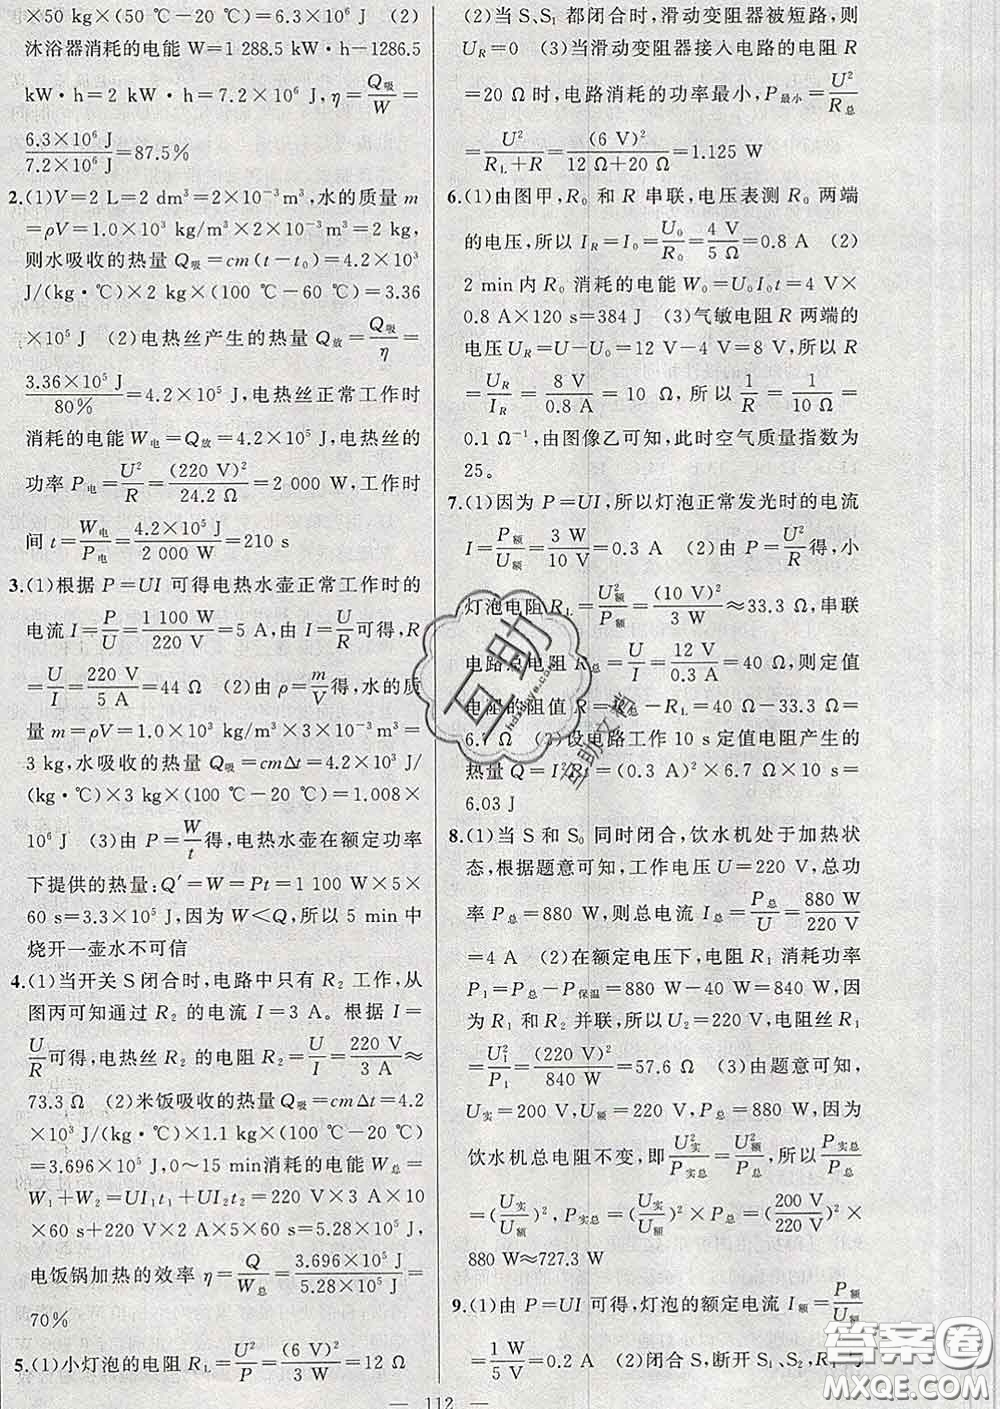 ×50 kg×(50 ℃−20 ℃)=6.3×10⁶ J (2)
沐浴器消耗的电能 W=1 288.5 kW·h−1286.5
kW·h=2 kW·h=7.2×10⁶ J,η=Q吸/W=
6.3×10⁶ J/7.2×10⁶ J=87.5%
2.(1)V=2 L=2 dm³=2×10⁻³ m³,水的质量 m
=ρV=1.0×10³ kg/m³×2×10⁻³ m³=2 kg,
则水吸收的热量 Q吸=cm(t−t₀)=4.2×10³
J/(kg·℃)×2 kg×(100 ℃−60 ℃)=3.36
×10⁵ J (2)电热丝产生的热量 Q放=Q吸/η=
3.36×10⁵ J/80%=4.2×10⁵ J,电热丝正常工作时
消耗的电能 W电=Q放=4.2×10⁵ J,电热丝的
功率 P电=U²/R=(220 V)²/24.2 Ω=2 000 W,工作时
间 t=W电/P电=4.2×10⁵ J/2 000 W=210 s
3.(1)根据 P=UI 可得电热水壶正常工作时的
电流 I=P/U=1 100 W/220 V=5 A,由 I=U/R可得,R
=U/I=220 V/5 A=44 Ω (2)由 ρ=m/V得,水的质
量 m=ρV=1.0×10³ kg/m³×3×10⁻³ m³=
3 kg,水吸收的热量 Q吸=cmΔt=4.2×10³ J/
(kg·℃)×3 kg×(100 ℃−20 ℃)=1.008×
10⁶ J (3)由 P=W/t得,电热水壶在额定功率
下提供的热量:Q′=W=Pt=1 100 W×5×
60 s=3.3×10⁵ J,因为 W<Q,所以 5 min 中
烧开一壶水不可信
4.(1)当开关 S 闭合时,电路中只有 R₂ 工作,从
图丙可知通过 R₂ 的电流 I=3 A。根据 I=
U/R可得,电热丝 R₂ 的电阻 R₂=U/I=220 V/3 A≈
73.3 Ω (2)米饭吸收的热量 Q吸=cmΔt=4.2
×10³ J/(kg·℃)×1.1 kg×(100 ℃−20 ℃)
=3.696×10⁵ J,0~15 min消耗的电能 W总=
W₁+W₂=UI₁t₁+UI₂t₂=220 V×3 A×10
×60 s+220 V×2 A×5×60 s=5.28×10⁵ J,
电饭锅加热的效率 η=Q/W总=3.696×10⁵ J/5.28×10⁵ J=
70%
5.(1)小灯泡的电阻 RL=U²/P=(6 V)²/3 W=12 Ω
(2)当 S、S₁ 都闭合时,滑动变阻器被短路,则
UR=0 (3)当滑动变阻器接入电路的电阻 R
=20 Ω 时,电路消耗的功率最小,P最小=U²/R总
=U²/(RL+R)=(6 V)²/(12 Ω+20 Ω)=1.125 W
6.(1)由图甲,R₀ 和 R 串联,电压表测 R₀ 两端
的电压,所以 IR=I₀=U₀/R₀=4 V/5 Ω=0.8 A (2)
2 min 内 R₀ 消耗的电能 W₀=U₀I₀t=4 V×
0.8 A×120 s=384 J (3)气敏电阻 R 两端的
电压 UR=U−U₀=12 V−4 V=8 V,所以 R
=UR/IR=8 V/0.8 A=10 Ω,所以 1/R=1/10 Ω=
0.1 Ω⁻¹,由图像乙可知,此时空气质量指数为
25。
7.(1)因为 P=UI,所以灯泡正常发光时的电流
I=P额/U额=3 W/10 V=0.3 A (2)由 P=U²/R得,小
灯泡电阻 RL=U额²/P额=(10 V)²/3 W≈33.3 Ω,串联
电路总电阻 R总=U/I=12 V/0.3 A=40 Ω,则定值
电阻的阻值 R=R总−RL=40 Ω−33.3 Ω=
6.7 Ω (3)设电路工作 10 s 定值电阻产生的
热量 Q=I²Rt=(0.3 A)²×6.7 Ω×10 s=
6.03 J
8.(1)当 S 和 S₀ 同时闭合,饮水机处于加热状
态,根据题意可知,工作电压 U=220 V,总功
率 P总=880 W,则总电流 I总=P总/U=880 W/220 V
=4 A (2)在额定电压下,电阻 R₁ 消耗功率
P₁=P总−P保温=880 W−40 W=840 W,因
为 R₁ 和 R₂ 并联,所以 U₂=220 V,电阻丝 R₁
=U₁²/P₁=(220 V)²/840 W≈57.6 Ω (3)由题意可知,
U实=200 V,U额=220 V,P总=880 W,因为
饮水机总电阻不变,即U实²/P实总=U额²/P总,所以P实总/P总
=(U实/U额)²,P实总=(U实/U额)²×P总=(200 V/220 V)²×
880 W≈727.3 W
9.(1)由 P=UI 可得,灯泡的额定电流 I额=P额/U额
=1 W/5 V=0.2 A (2)闭合 S,断开 S₁、S₂,R₁与
— 112 —
互助
hdzuoye.com
互助文档
答案圈
MXQE.COM